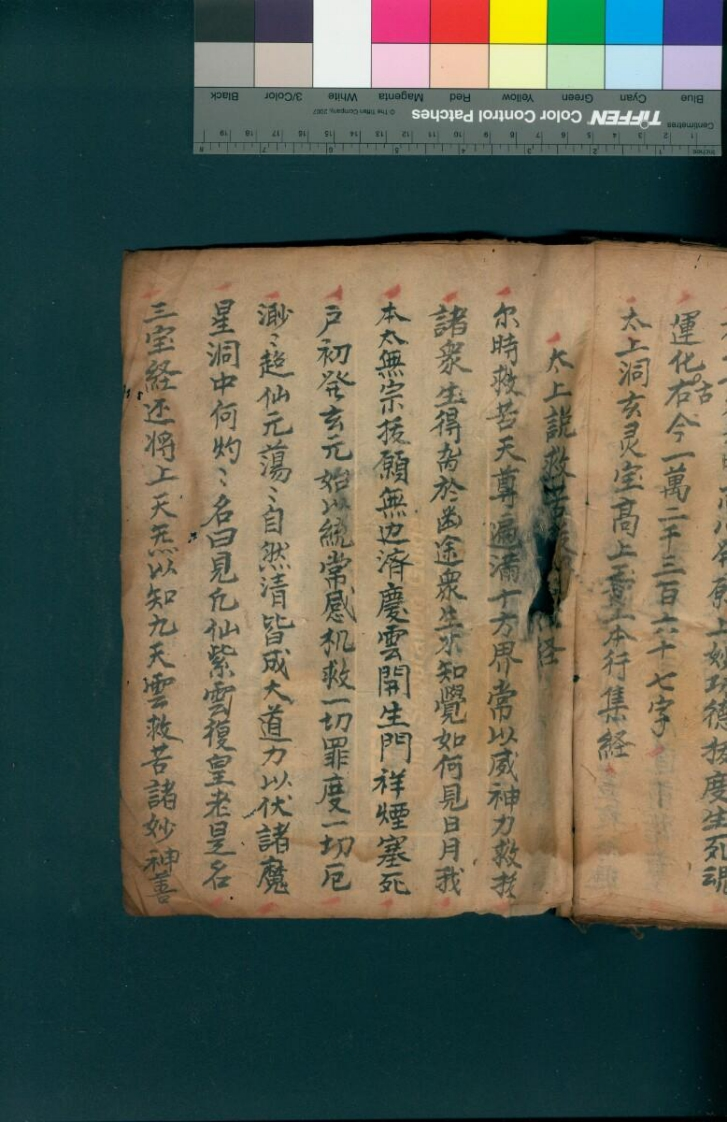 Blue Cyan Green Yellow Red Magenta White 3/Color Black
TIFFEN Color Control Patches © The Tiffen Company, 2007
Centimetres
Inches
妙功德拔度生死魂
運化右今一萬二千三百六十七字
古
太上洞玄灵宝高上玉皇本行集経
太上説救苦経
尔時救苦天尊遍满十方界常以威神力救拔
諸衆生得离於迷途衆生不知覺如何見日月我
本太無宗拔願無边済慶雲開生門祥煙塞死
户初発玄元始以統常感机救一切罪度一切厄
渺〻超仙元蕩〻自然清皆成大道力以伏諸魔
星洞中何灼〻名曰見凢仙紫雲覆皇老是名
三宝経还将上天炁以知九天雲救苦諸妙神善